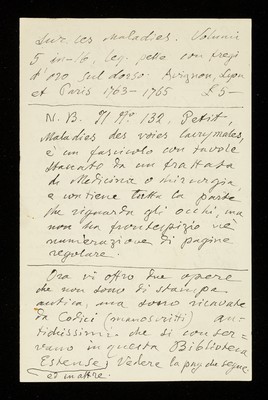 sur. ces Maladies. Volumi
5 in-16, leg. pelle, con fregi
d'oro sul dorso. Avignon, Lyon
et Paris 1763-1765 £ 5-
N. B. Il N.º 132, Petit,
Maladies des voies lacrymales,
è un fascicolo con tavole
staccato da un trattato
di Medicina o chirurgia,
e contiene tutta la parte
che riguarda gli occhi, ma
non ha frontespizio nè
numerazione di pagine
regolare.
Ora vi offro due opere
che non sono di stampa
antica, ma sono ricavate
da Codici (manoscritti) an-
tichissimi che si conser-
vano in questa Biblioteca
Estense; Vedere la pag. che segue